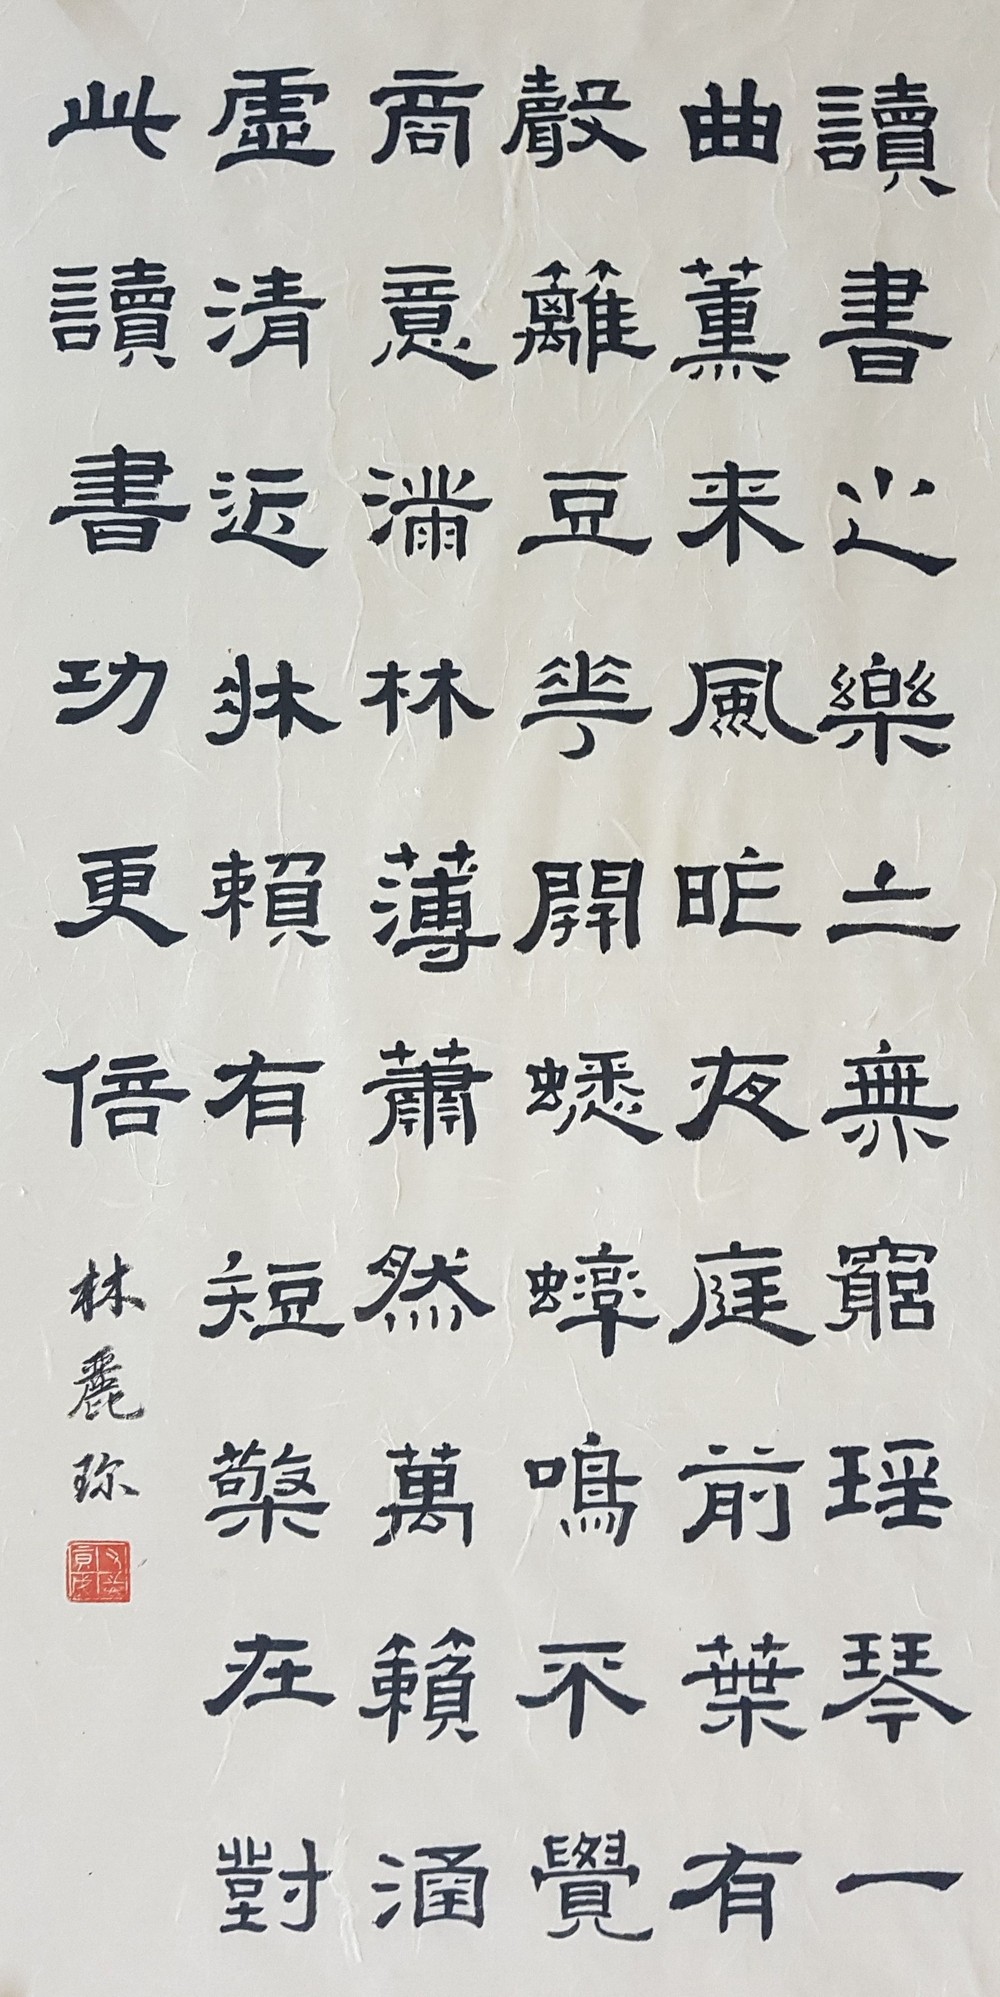 讀書之樂二無窮瑤琴一
曲薰来風昨夜庭前葉有
聲籬豆華開蟋蟀鳴不覺
商意滿林薄蕭然萬籟涵
虛清近牀賴有短檠在對
此讀書功更倍
林麗珎